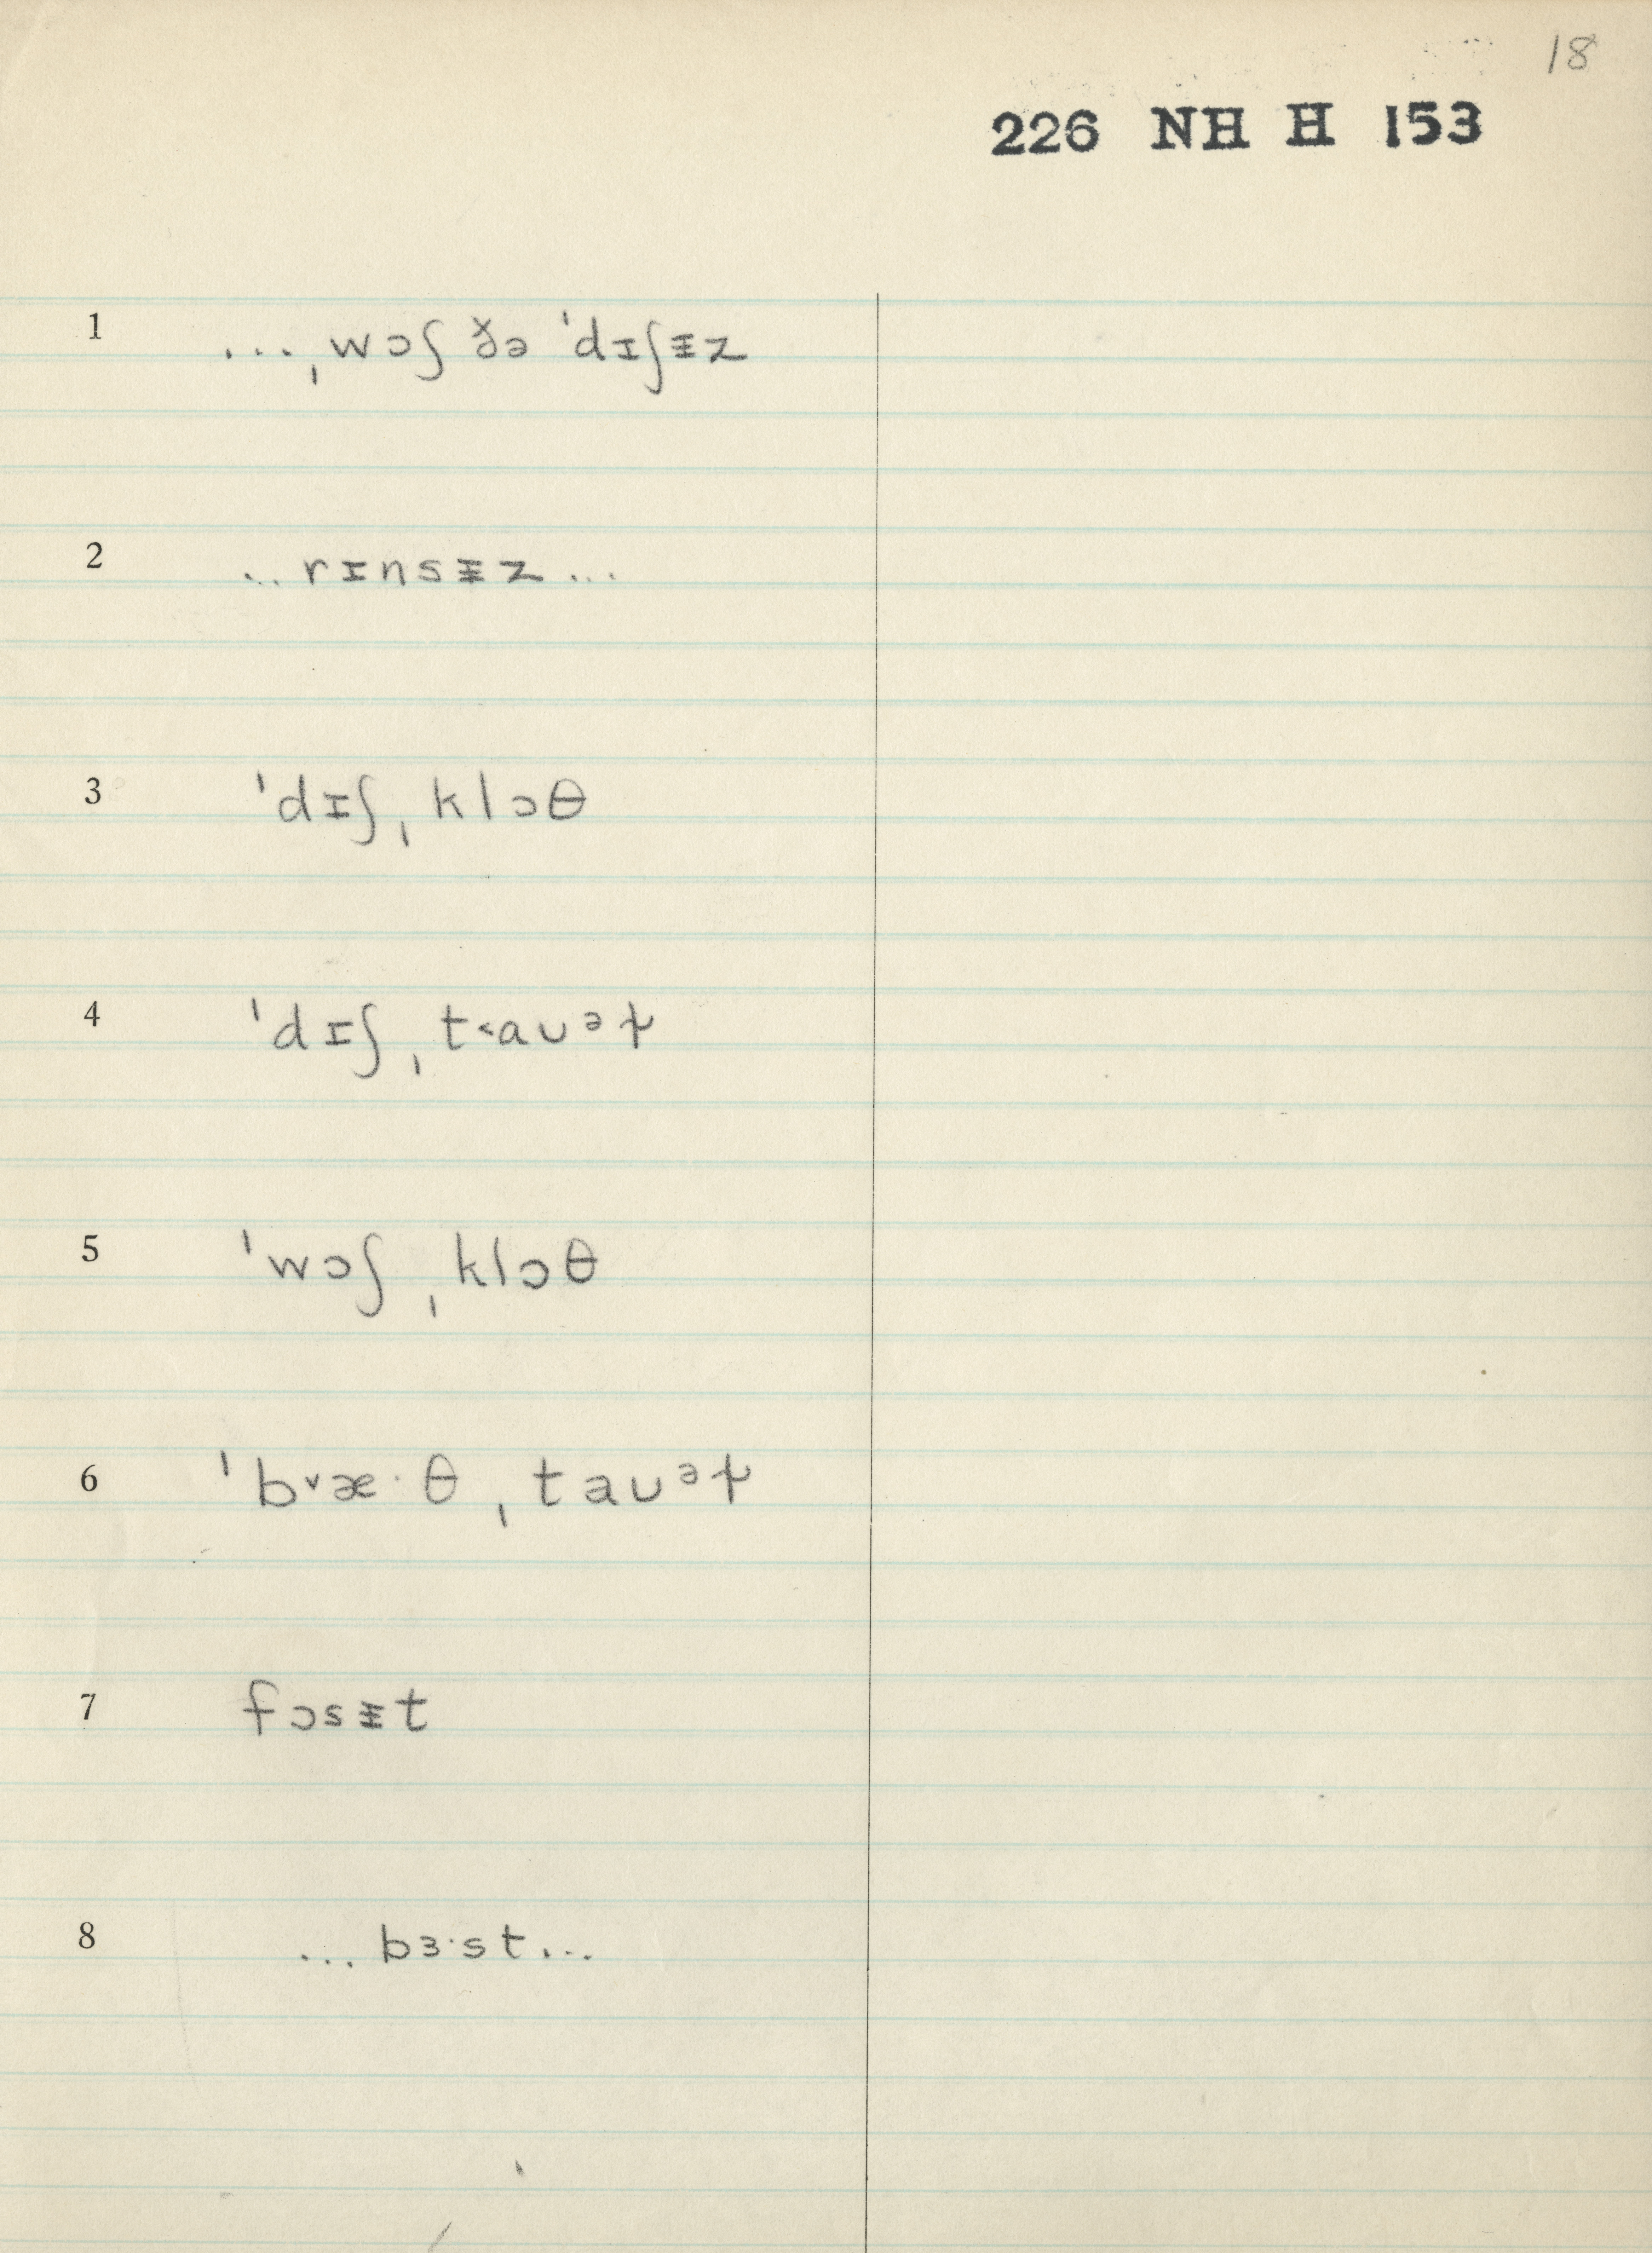 18
226 NH H 153
1 ...ˌwɔʃ ðə ˈdɪʃɪ̵z
2 ..rɪnsɪ̵z...
3 ˈdɪʃˌklɔθ
4 ˈdɪʃˌt˂aʊᵊɫ
5 ˈwɔʃˌklɔθ
6 ˈb˅æ·θˌtaʊᵊɫ
7 fɔsɪ̵t
8 ...bɜ·st...